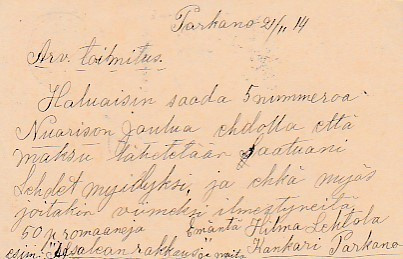 Parkano 21/11 14
Arv. toimitus.
Haluaisin saada 5 nummeroa
Nuorison Joulua ehdolla että
maksu lähetetään saatuani
Lehdet myidyksi, ja ehkä myös
joitakin viimeksi ilmestyneitä
50 p romaaneja Emäntä Hilma Lehtola
esim: rakkaus Kankari Parkano